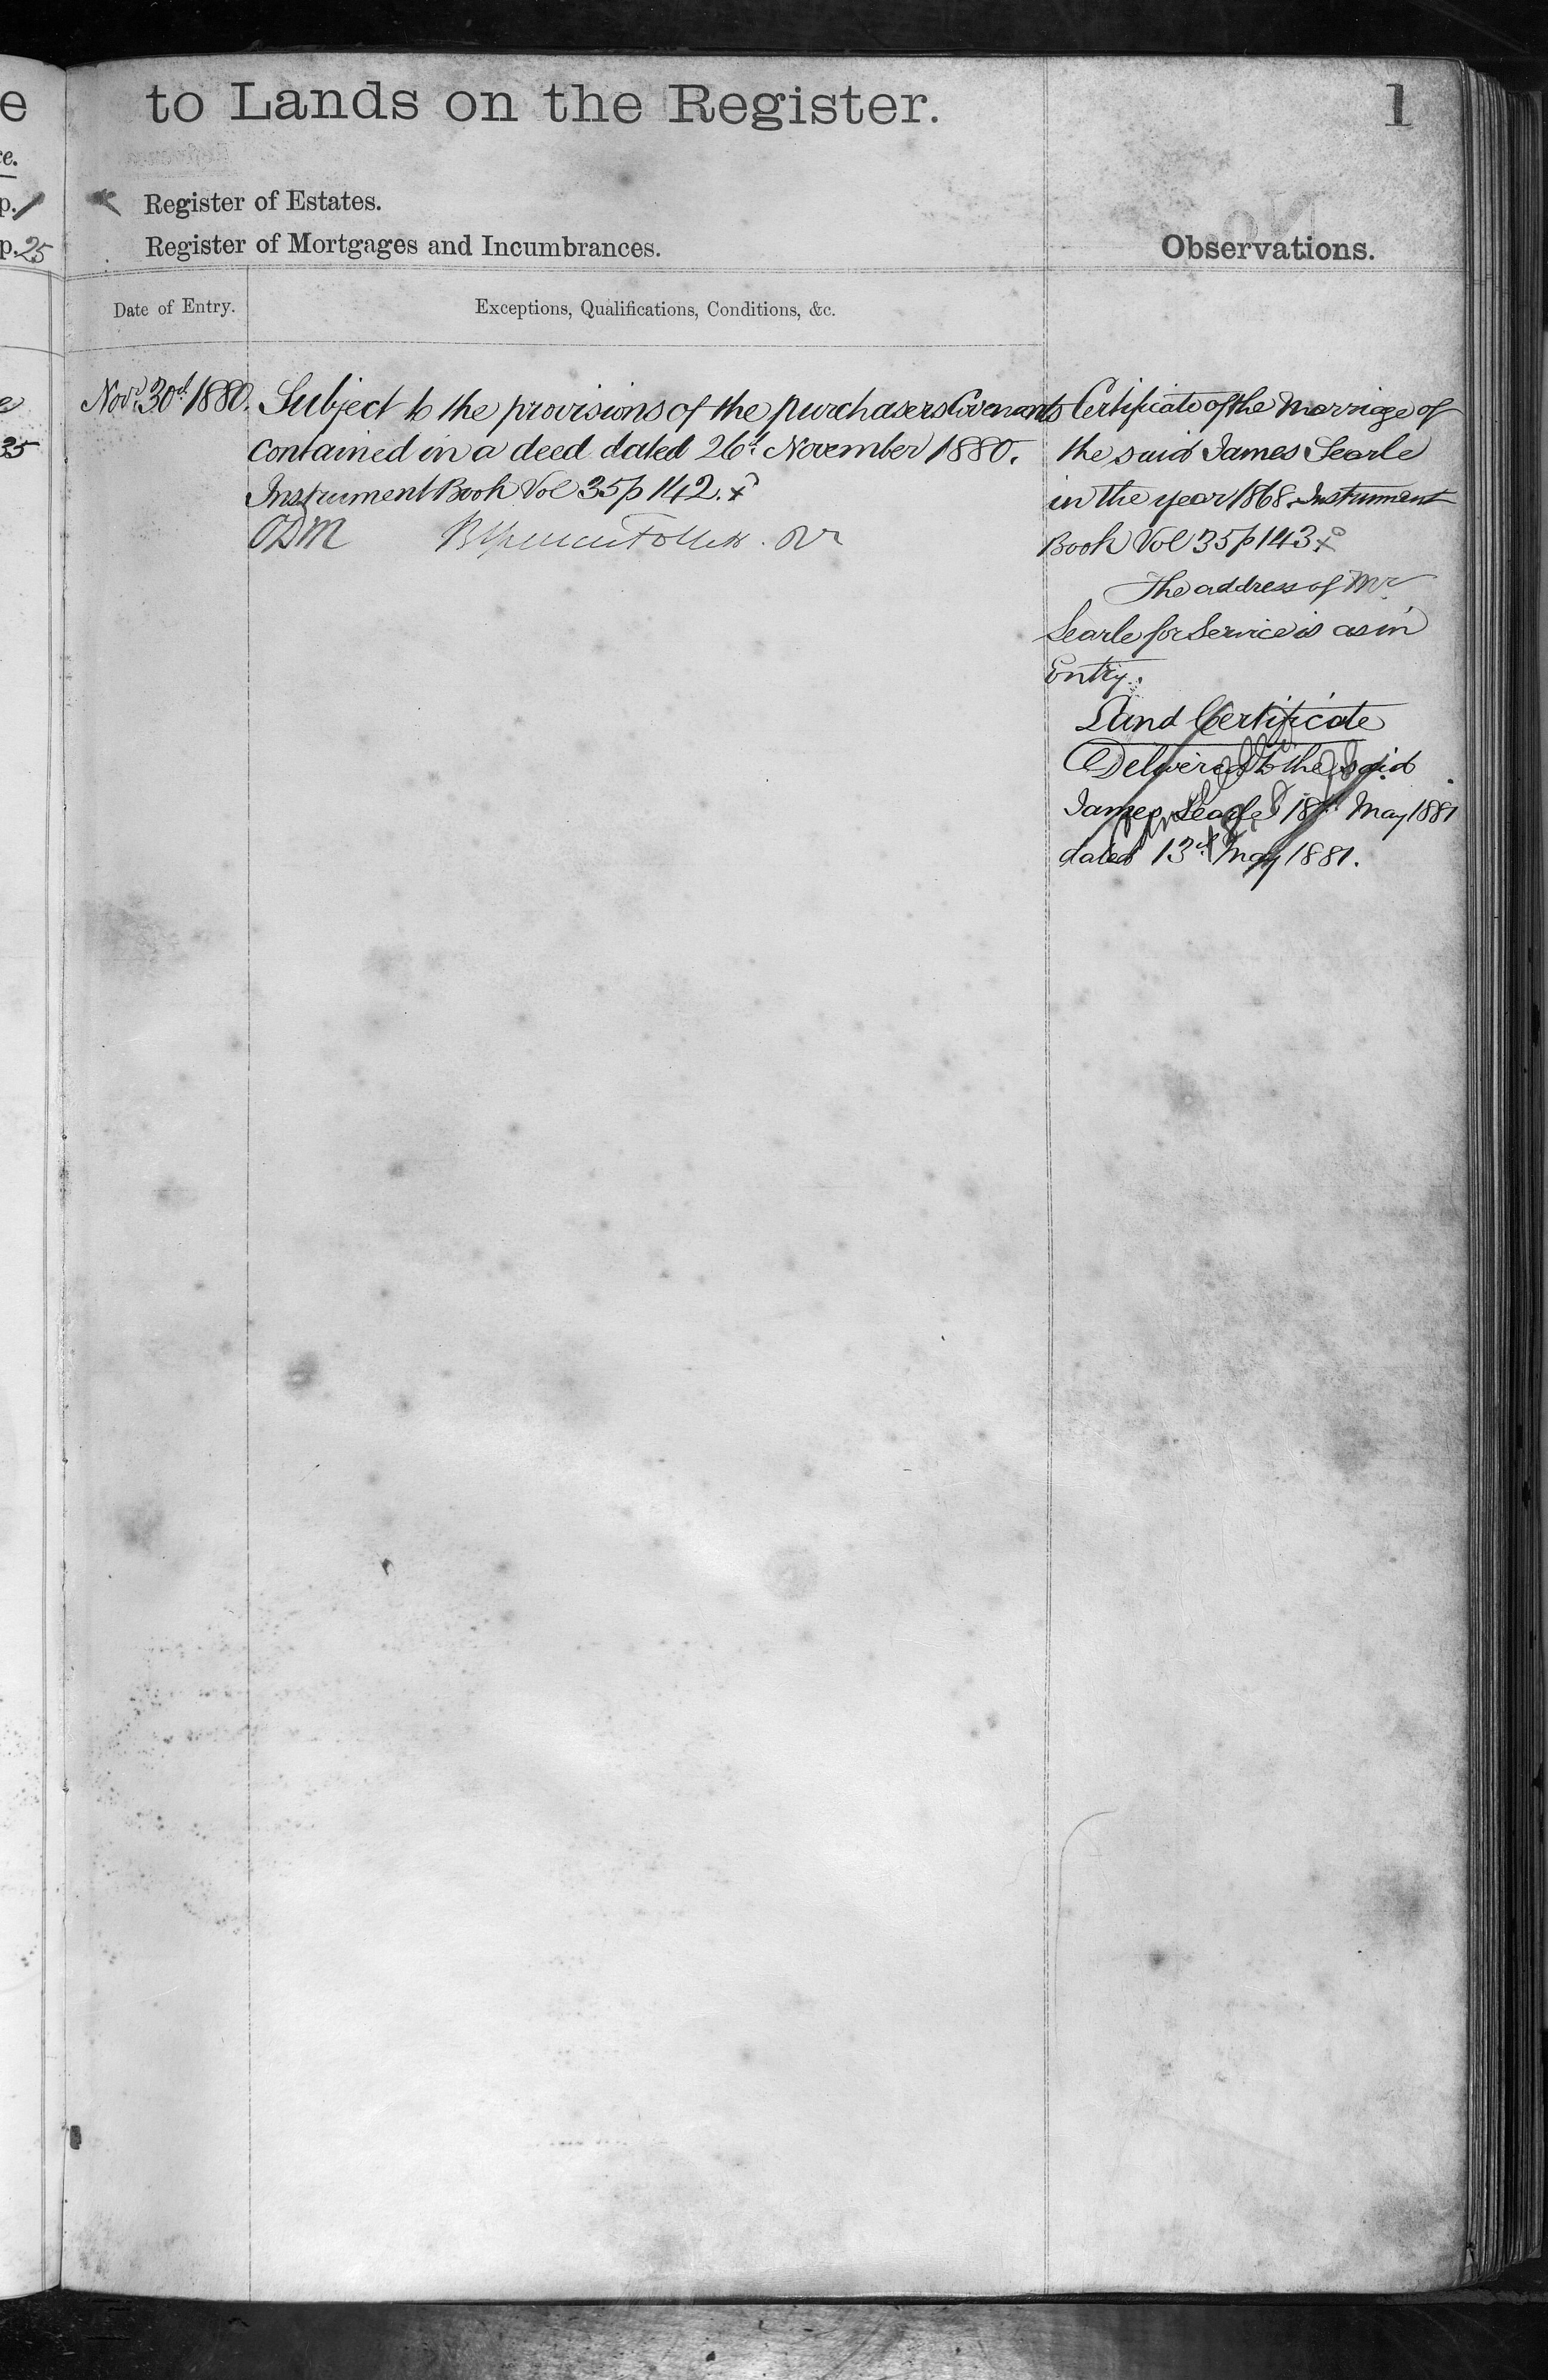 e
to Lands on the Register.
1
re.
p. 1
Register of Estates.
p. 25
Register of Mortgages and Incumbrances.
Observations.
Date of Entry.
Exceptions, Qualifications, Conditions, &c.
35
Novr. 30th 1880.
Subject to the provisions of the purchasers Covenants
contained in a deed dated 26th November 1880.
Instrument Book Vol 35 p 142. x
ODM
Certificate of the Marriage of
the said James Searle
in the year 1868. Instrument
Book Vol 35 p 143 x
The address of Mr.
Searle for Service is as in
Entry.
Land Certificate
Delivered to the said
James Searle 18th May 1881
dated 13th May 1881.
Cancelled